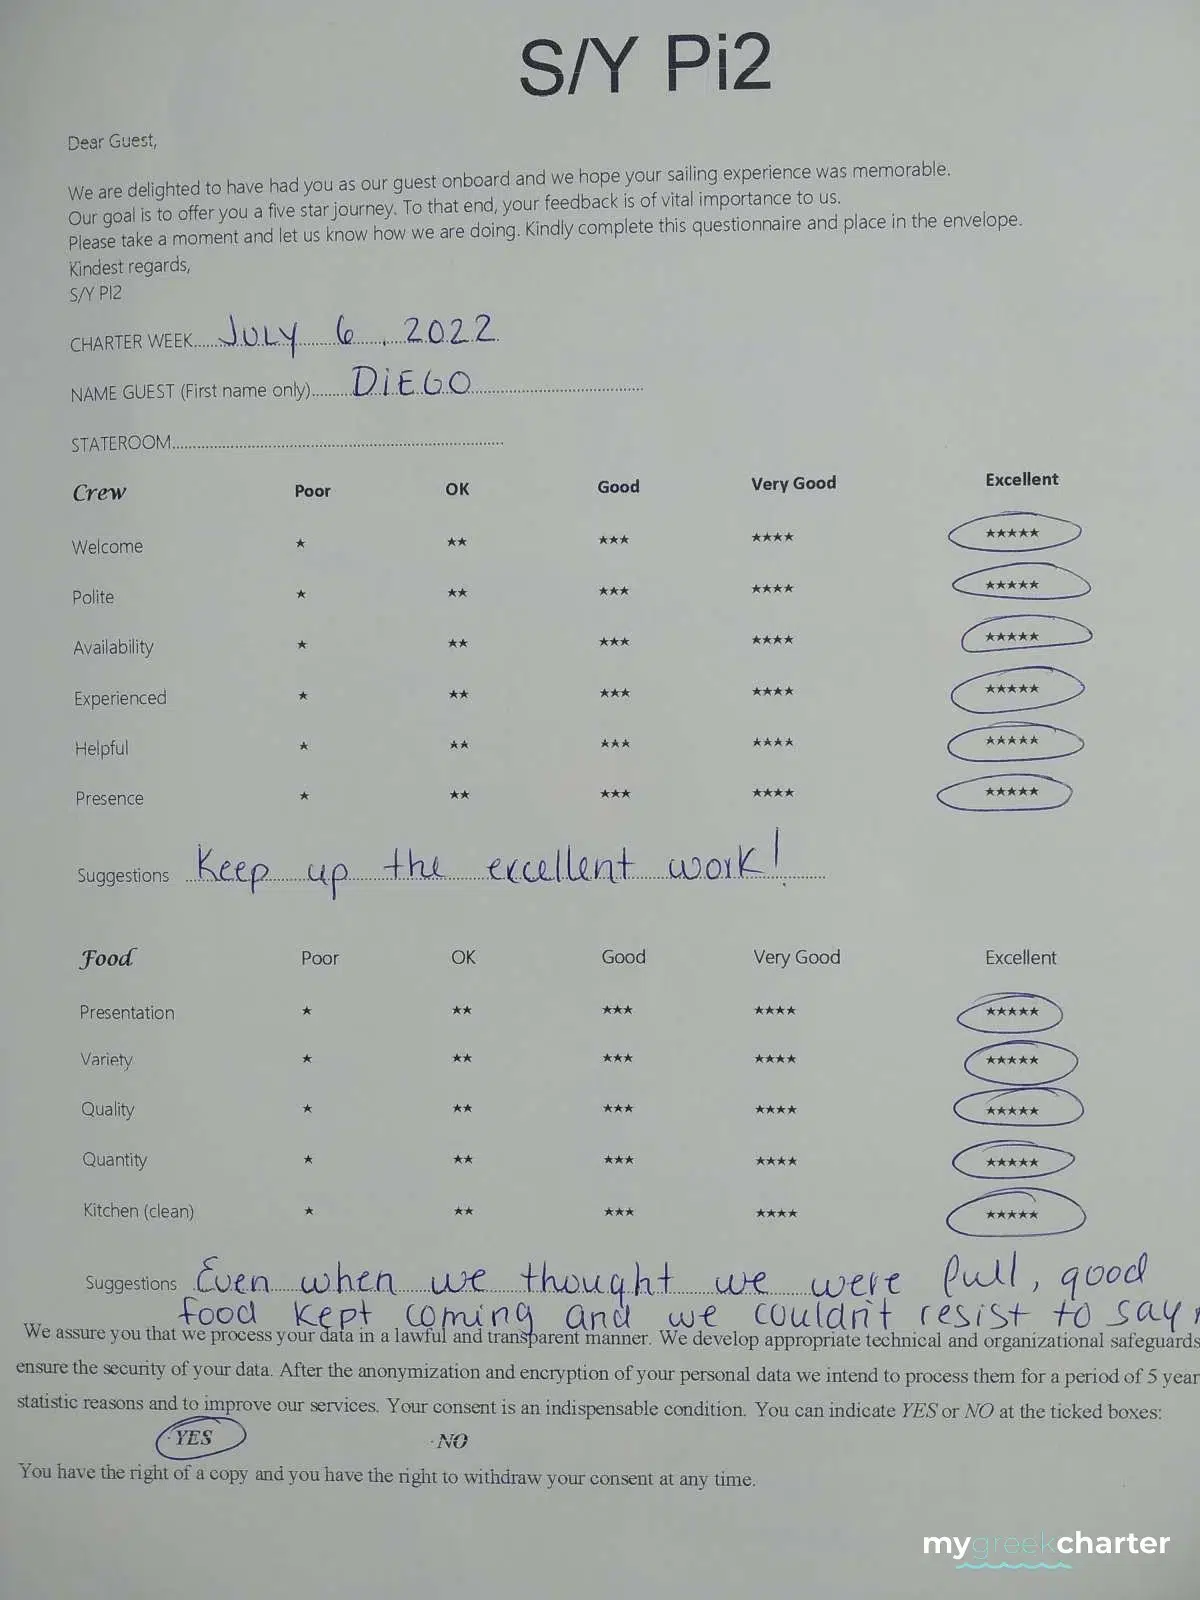 S/Y Pi2
Dear Guest,
We are delighted to have had you as our guest onboard and we hope your sailing experience was memorable.
Our goal is to offer you a five star journey. To that end, your feedback is of vital importance to us.
Please take a moment and let us know how we are doing. Kindly complete this questionnaire and place in the envelope.
Kindest regards,
S/Y PI2
CHARTER WEEK......JULY 6, 2022
NAME GUEST (First name only)......DIEGO
STATEROOM......
Crew Poor OK Good Very Good Excellent
Welcome ★ ★★ ★★★ ★★★★ ★★★★★
Polite ★ ★★ ★★★ ★★★★ ★★★★★
Availability ★ ★★ ★★★ ★★★★ ★★★★★
Experienced ★ ★★ ★★★ ★★★★ ★★★★★
Helpful ★ ★★ ★★★ ★★★★ ★★★★★
Presence ★ ★★ ★★★ ★★★★ ★★★★★
Suggestions Keep up the excellent work!
Food Poor OK Good Very Good Excellent
Presentation ★ ★★ ★★★ ★★★★ ★★★★★
Variety ★ ★★ ★★★ ★★★★ ★★★★★
Quality ★ ★★ ★★★ ★★★★ ★★★★★
Quantity ★ ★★ ★★★ ★★★★ ★★★★★
Kitchen (clean) ★ ★★ ★★★ ★★★★ ★★★★★
Suggestions Even when we thought we were full, good
food kept coming and we couldn't resist to say
We assure you that we process your data in a lawful and transparent manner. We develop appropriate technical and organizational safeguards
ensure the security of your data. After the anonymization and encryption of your personal data we intend to process them for a period of 5 year
statistic reasons and to improve our services. Your consent is an indispensable condition. You can indicate YES or NO at the ticked boxes:
·YES ·NO
You have the right of a copy and you have the right to withdraw your consent at any time.
mygreekcharter